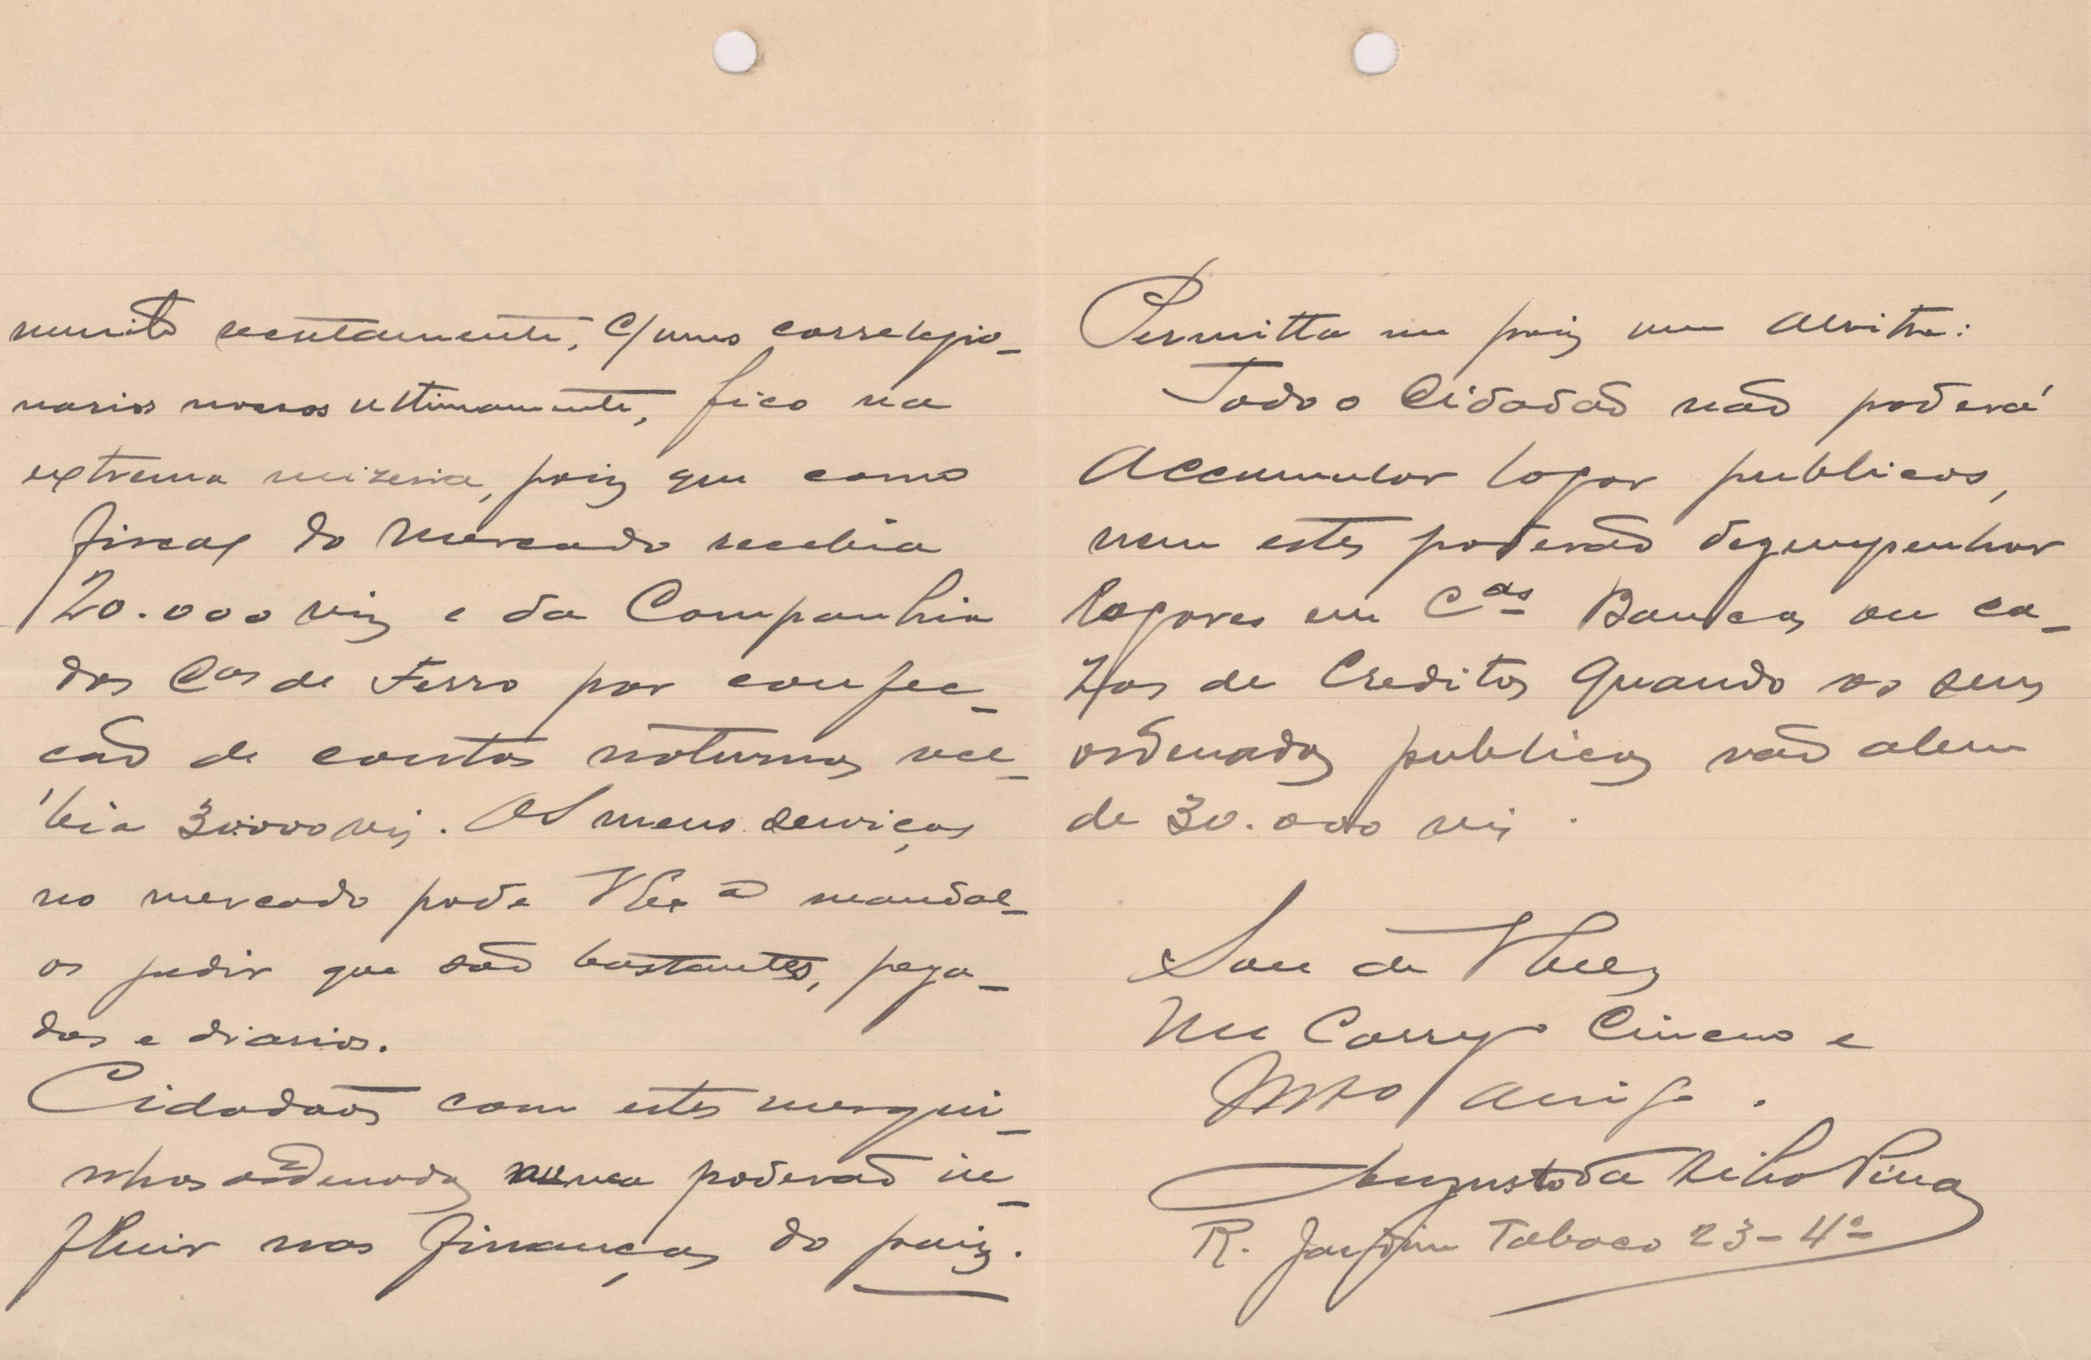 muito recentamente, c/ uns correlegio-
narios nossos ultimamente, fico na
extrema mizeria, poiz que como
fiscal do Mercado recebia
20.000 reiz e da Companhia
dos Cos de Ferro por confec-
cão de contos noturnos rece-
bia 30.000 reis. Os meus serviços
no mercado pode VExa mandal-
os pedir que são bastantes, peza-
dos e diarios.
Cidadãos com estes mesqui-
nhos ordenados nunca poderão in-
fluir nas finanças do paiz.
Permitta me poiz um alvitre:
Todo o Cidadão não poderá
Accumular logar publicos,
nem estes poderão dezempenhar
logares em Cas Bancos ou ca-
zas de Creditos quando os seus
ordenados publicos vão alem
de 30.000 reis.
Sou de VExcia
Mto Corrego Sincero e
Mto Amigo.
Augusto da Silva Pina
R. Jardim Tabaco 23-4º